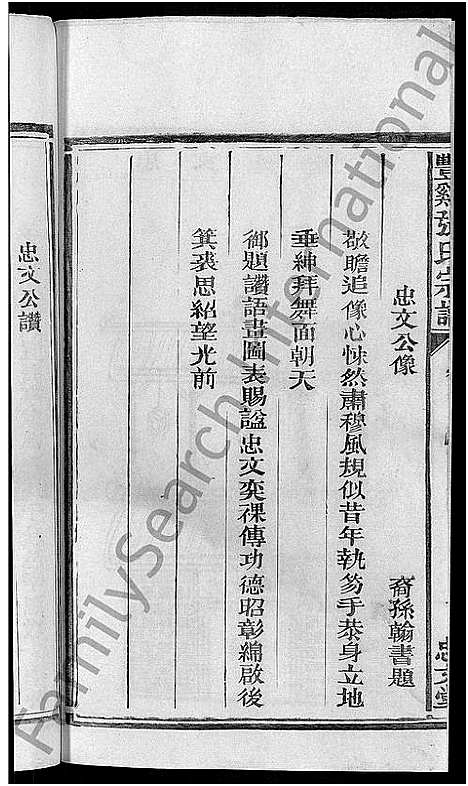 豐谿張氏宗譜
忠文堂
忠文公像 裔孫翰書題
敬瞻追像心悚然肅穆風規似昔年執笏手恭身立地
垂紳拜舞面朝天
御題讚語畫圖表賜諡忠文奕祼傳功德昭彰綿啟後
箕裘思紹望光前
忠文公讚
FamilySearch International